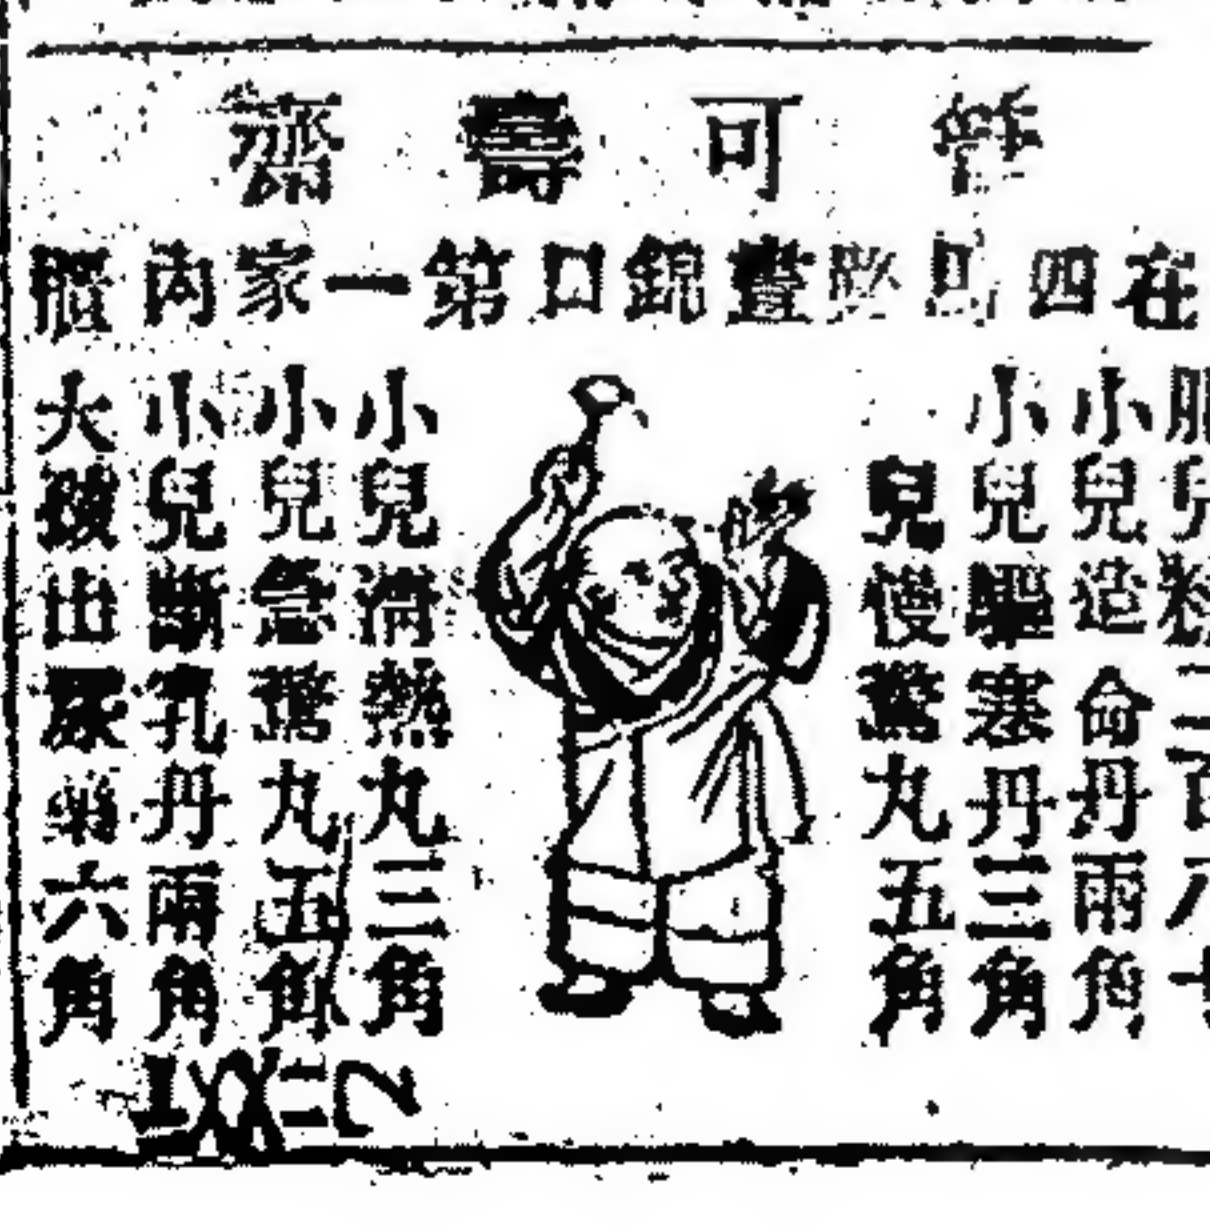 可壽齋
在四 畫錦口第一家丙
二百八十
小兒造命丹兩角
小兒驅寒丹三角
兒慢驚丸五角
小兒清熱丸三角
小兒急驚丸五角
小兒斷乳丹兩角
大 出尿藥六角